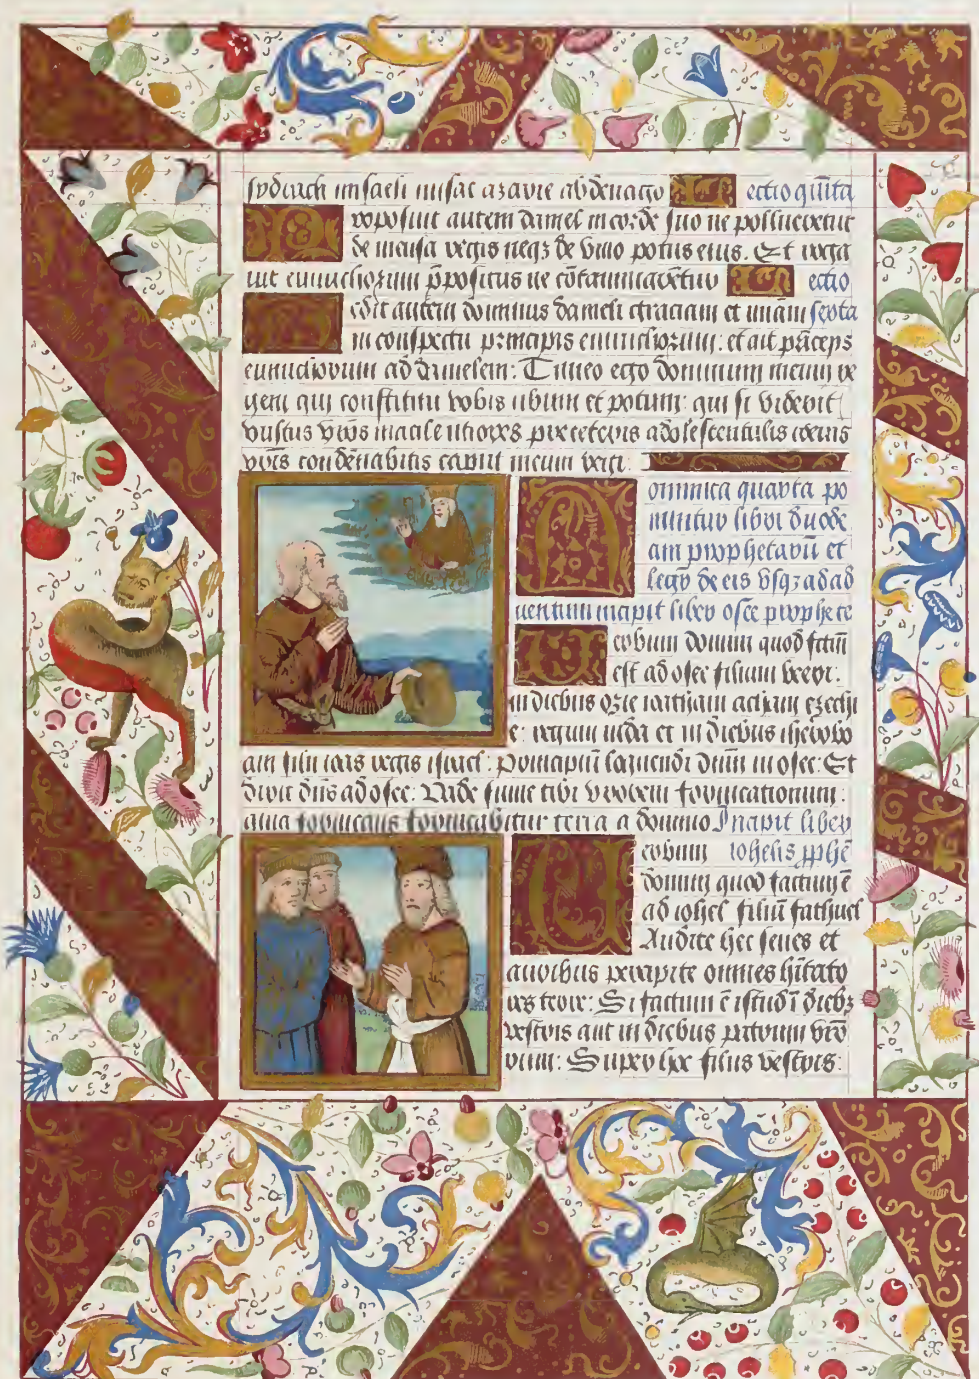 sydrach misaeli misac azarie abdenago Lectio quīta
Proposuit autem daniel in corde suo ne pollueretur
de mensa regis neqz de vino potus eius. Et roga
uit eunuchorum p̄positus ne cōtaminaretur Lectio
Dedit autem dominus danieli graciam et uniam sexta
in conspectu principis eunuchorum: et ait prīceps
eunuchorum ad danielem: Timeo ego dominum meum re
gem qui constituit vobis cibum et potum: qui si viderit
vultus vr̄os macilentiores pre ceteris adolescentulis
condēnabitis caput meum regi:
Dominica quarta po
nuntur libri duode
cim prophetarū et
legr̄ de eis vsqz ad ad
uentum incipit liber osee prophete
Uerbum domini quod factū
est ad osee filium beeri:
in diebus ozie ioatham acham ezechi
e: regum iuda et in diebus iherobo
am filii ioas regis israel: Principiū loquendi dn̄m in osee: Et
dixit dn̄s ad osee: Vade sume tibi vxorem fornicationum:
quia fornicans fornicabitur terra a domino Incipit liber
Uerbum iohelis pphē
domini quod factum ē
ad iohel filiū fathuel
Audite hec senes et
auribus percipite omnes hītato
res terre: Si factum ē istud ī diebz
vestris aut in diebus patrum vr̄o
rum: Super hoc filiis vestris: